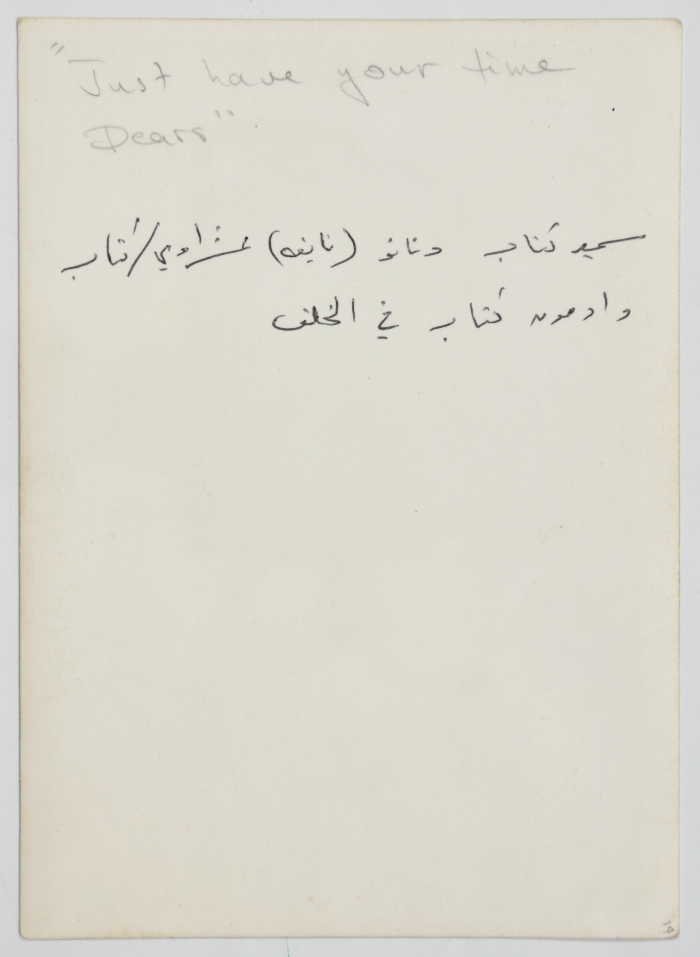 "Just have your time
Dears"
سعيد كتاب ونانو (نايفه) عشراوي/كتاب
وادمون كتاب في الخلف